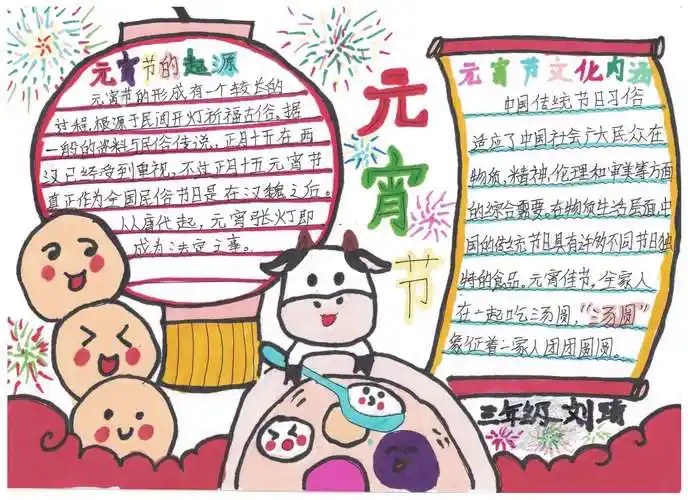 元宵节的起源
元宵节的形成有一个较长的
过程,根源于民间开灯祈福古俗。据
一般的资料与民俗传说,正月十五在西
汉已经受到重视,不过正月十五元宵节
真正作为全国民俗节日是在汉魏之后。
从唐代起,元宵张灯即
成为法定之事。
元宵节
元宵节文化内涵
中国传统节日习俗
适应了中国社会广大民众在
物质,精神,伦理和审美等方面
的综合需要。在物质生活层面,中
国的传统节日具有许多不同节日独
特的食品。元宵佳节,全家人
在一起吃汤圆,“汤圆”
象征着一家人团团圆圆。
三年级 刘